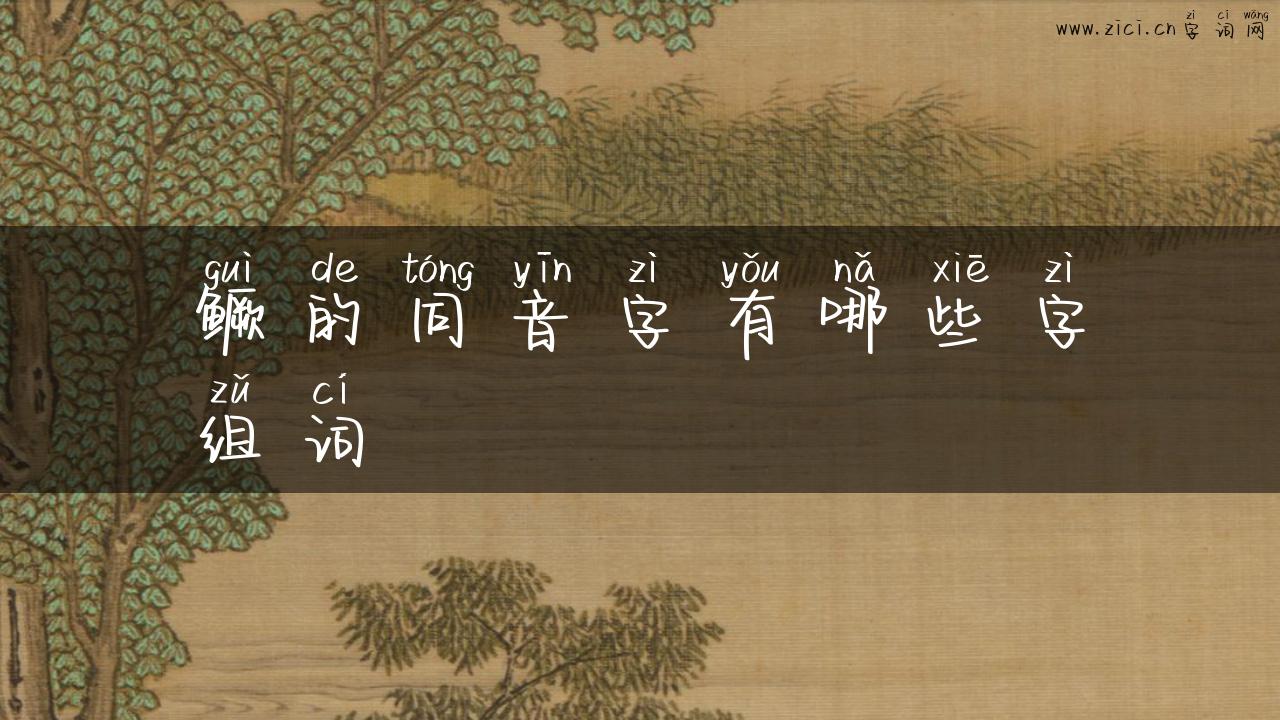 zì cí wǎng
www.zici.cn字词网
guì de tóng yīn zì yǒu nǎ xiē zì
鳜的同音字有哪些字
zǔ cí
组词